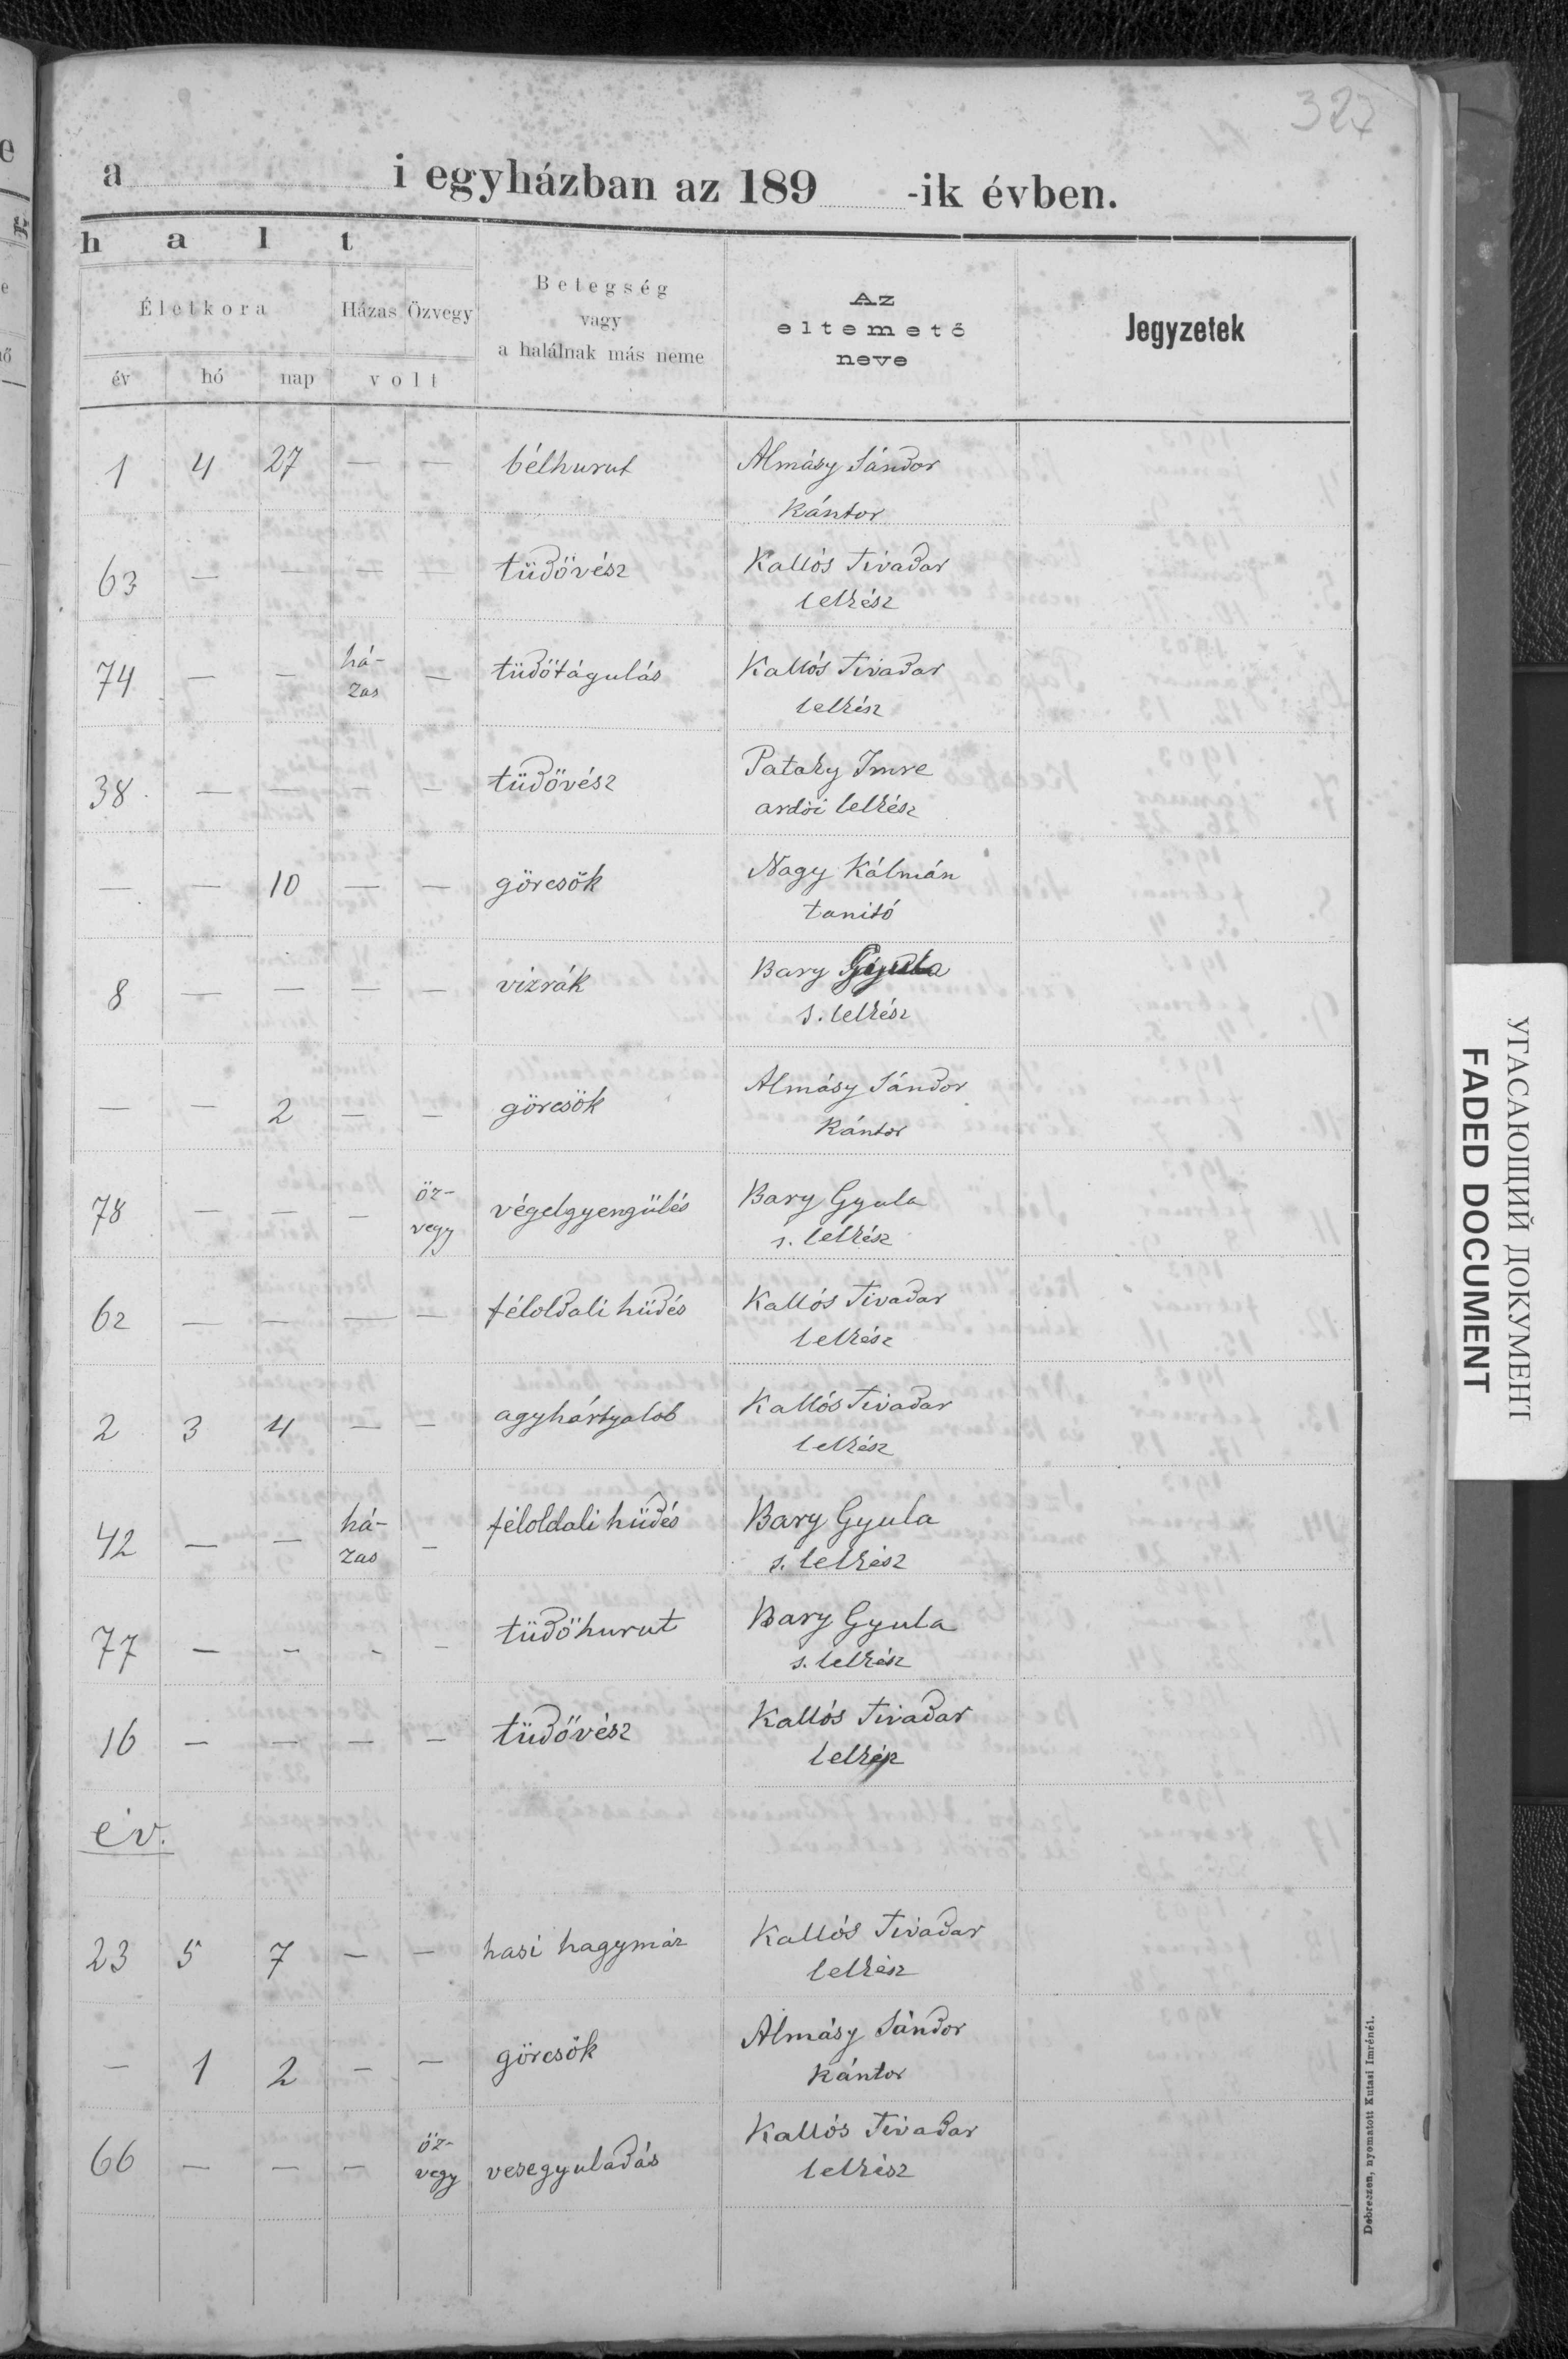 327
a i egyházban az 189 -ik évben.
h a l t
Életkora Házas Özvegy Betegség vagy a halálnak más neme Az eltemető neve Jegyzetek
év hó nap volt
1 4 27 — — bélhurut Almásy Sándor
kántor
63 — — — — tüdővész Kallós Tivadar
lelkész
74 — — há-zas — tüdőtágulás Kallós Tivadar
lelkész
38 — — — — tüdővész Pataky Imre
ardói lelkész
— — 10 — — görcsök Nagy Kálmán
tanító
8 — — — — vízrák Bary Gyula
s. lelkész
— — 2 — — görcsök Almásy Sándor
kántor
78 — — — öz-vegy végelgyengülés Bary Gyula
s. lelkész
62 — — — — féloldali hüdés Kallós Tivadar
lelkész
2 3 4 — — agyhártyalob Kallós Tivadar
lelkész
42 — — há-zas — féloldali hüdés Bary Gyula
s. lelkész
77 — — - — tüdőhurut Bary Gyula
s. lelkész
16 — — — — tüdővész Kallós Tivadar
lelkész
év.
23 5 7 — — hasi hagymáz Kallós Tivadar
lelkész
— 1 2 — — görcsök Almásy Sándor
kántor
66 — — — öz-vegy vesegyuladás Kallós Tivadar
lelkész
Debreczen, nyomatott Kutasi Imrénél.
УГАСАЮЩИЙ ДОКУМЕНТ
FADED DOCUMENT